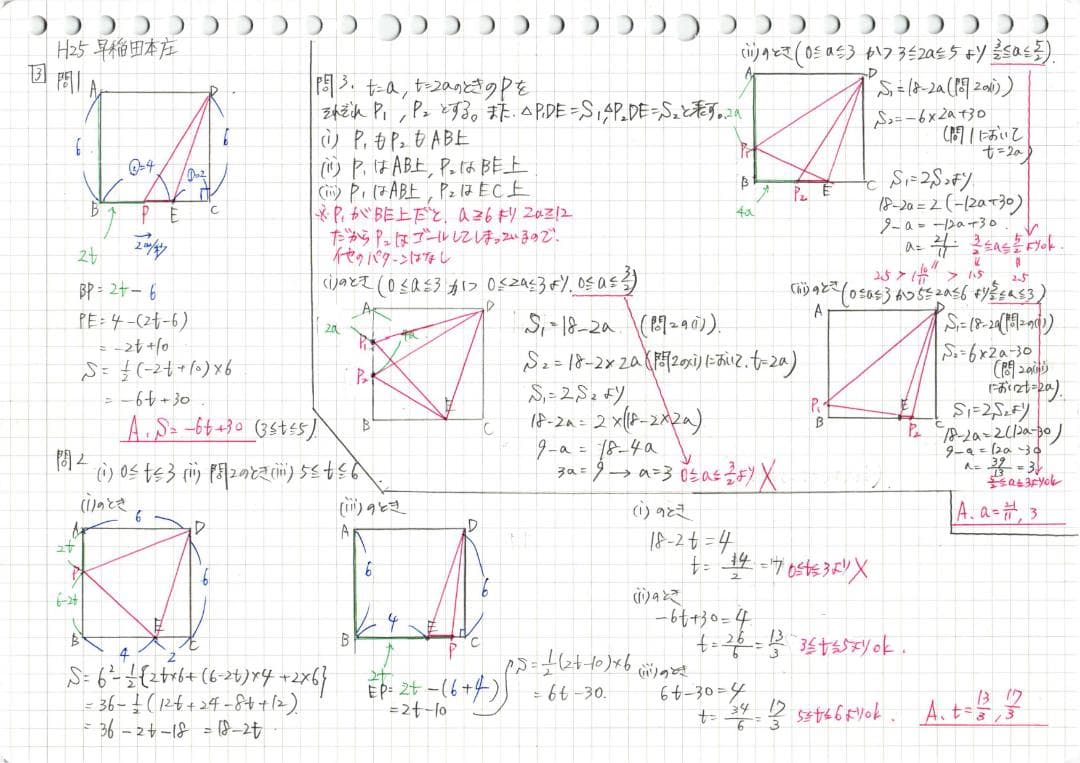 H25 早稲田本庄
3
問1
A
D
6
②=4
①=2
6
B
P
E
C
2cm/秒
2t
BP=2t-6
PE=4-(2t-6)
=-2t+10
S=1/2(-2t+10)×6
=-6t+30
A. S=-6t+30 (3≦t≦5)
問2
(i) 0≦t≦3 (ii) 問2のとき(iii) 5≦t≦6
(i)のとき
6
A
D
2t
P
6-2t
6
B
E
C
4
2
S=6²-1/2{2t×6+(6-2t)×4+2×6}
=36-1/2(12t+24-8t+12)
=36-2t-18 =18-2t
(iii)のとき
A
D
6
6
4
B
E
P
C
2t
EP=2t-(6+4)
=2t-10
S=1/2(2t-10)×6
=6t-30
(i) のとき
18-2t=4
t=14/2=7 0≦t≦3より×
(ii)のとき
-6t+30=4
t=26/6=13/3 3≦t≦5よりok.
(iii)のとき
6t-30=4
t=34/6=17/3 5≦t≦6よりok.
A. t=13/3, 17/3
問3. t=a, t=2aのときのPを
それぞれP₁, P₂とする。また、△P₁DE=S₁, △P₂DE=S₂と表す。
(i) P₁もP₂もAB上
(ii) P₁はAB上, P₂はBE上
(iii) P₁はAB上, P₂はEC上
※P₁がBE上だと、a≧6より2a≧12
だからP₂はゴールしてしまっているので、
他のパターンはなし
(i)のとき (0≦a≦3 かつ 0≦2a≦3より, 0≦a≦3/2)
A
D
2a
4a
P₁
P₂
B
E
C
S₁=18-2a (問2の(i)).
S₂=18-2×2a(問2の(i)において、t=2a)
S₁=2S₂より
18-2a=2×(18-2×2a)
9-a=18-4a
3a=9→a=3 0≦a≦3/2より×
(ii)のとき(0≦a≦3 かつ 3≦2a≦5より 3/2≦a≦5/2)
A
D
2a
P₁
B
P₂
E
C
4a
S₁=18-2a(問2の(i))
S₂=-6×2a+30
(問1において
t=2a)
S₁=2S₂より
18-2a=2(-12a+30)
9-a=-12a+30
a=21/11. 3/2≦a≦5/2よりok.
2.5 > 1 10/11 > 1.5
2.5
(iii)のとき(0≦a≦3かつ5≦2a≦6より5/2≦a≦3)
A
D
P₁
B
E
P₂
C
S₁=18-2a(問2の(i))
S₂=6×2a-30
(問2の(iii)
においてt=2a)
S₁=2S₂より
18-2a=2(12a-30)
9-a=12a-30
a=39/13=3
5/2≦a≦3よりok
A. a=21/11, 3